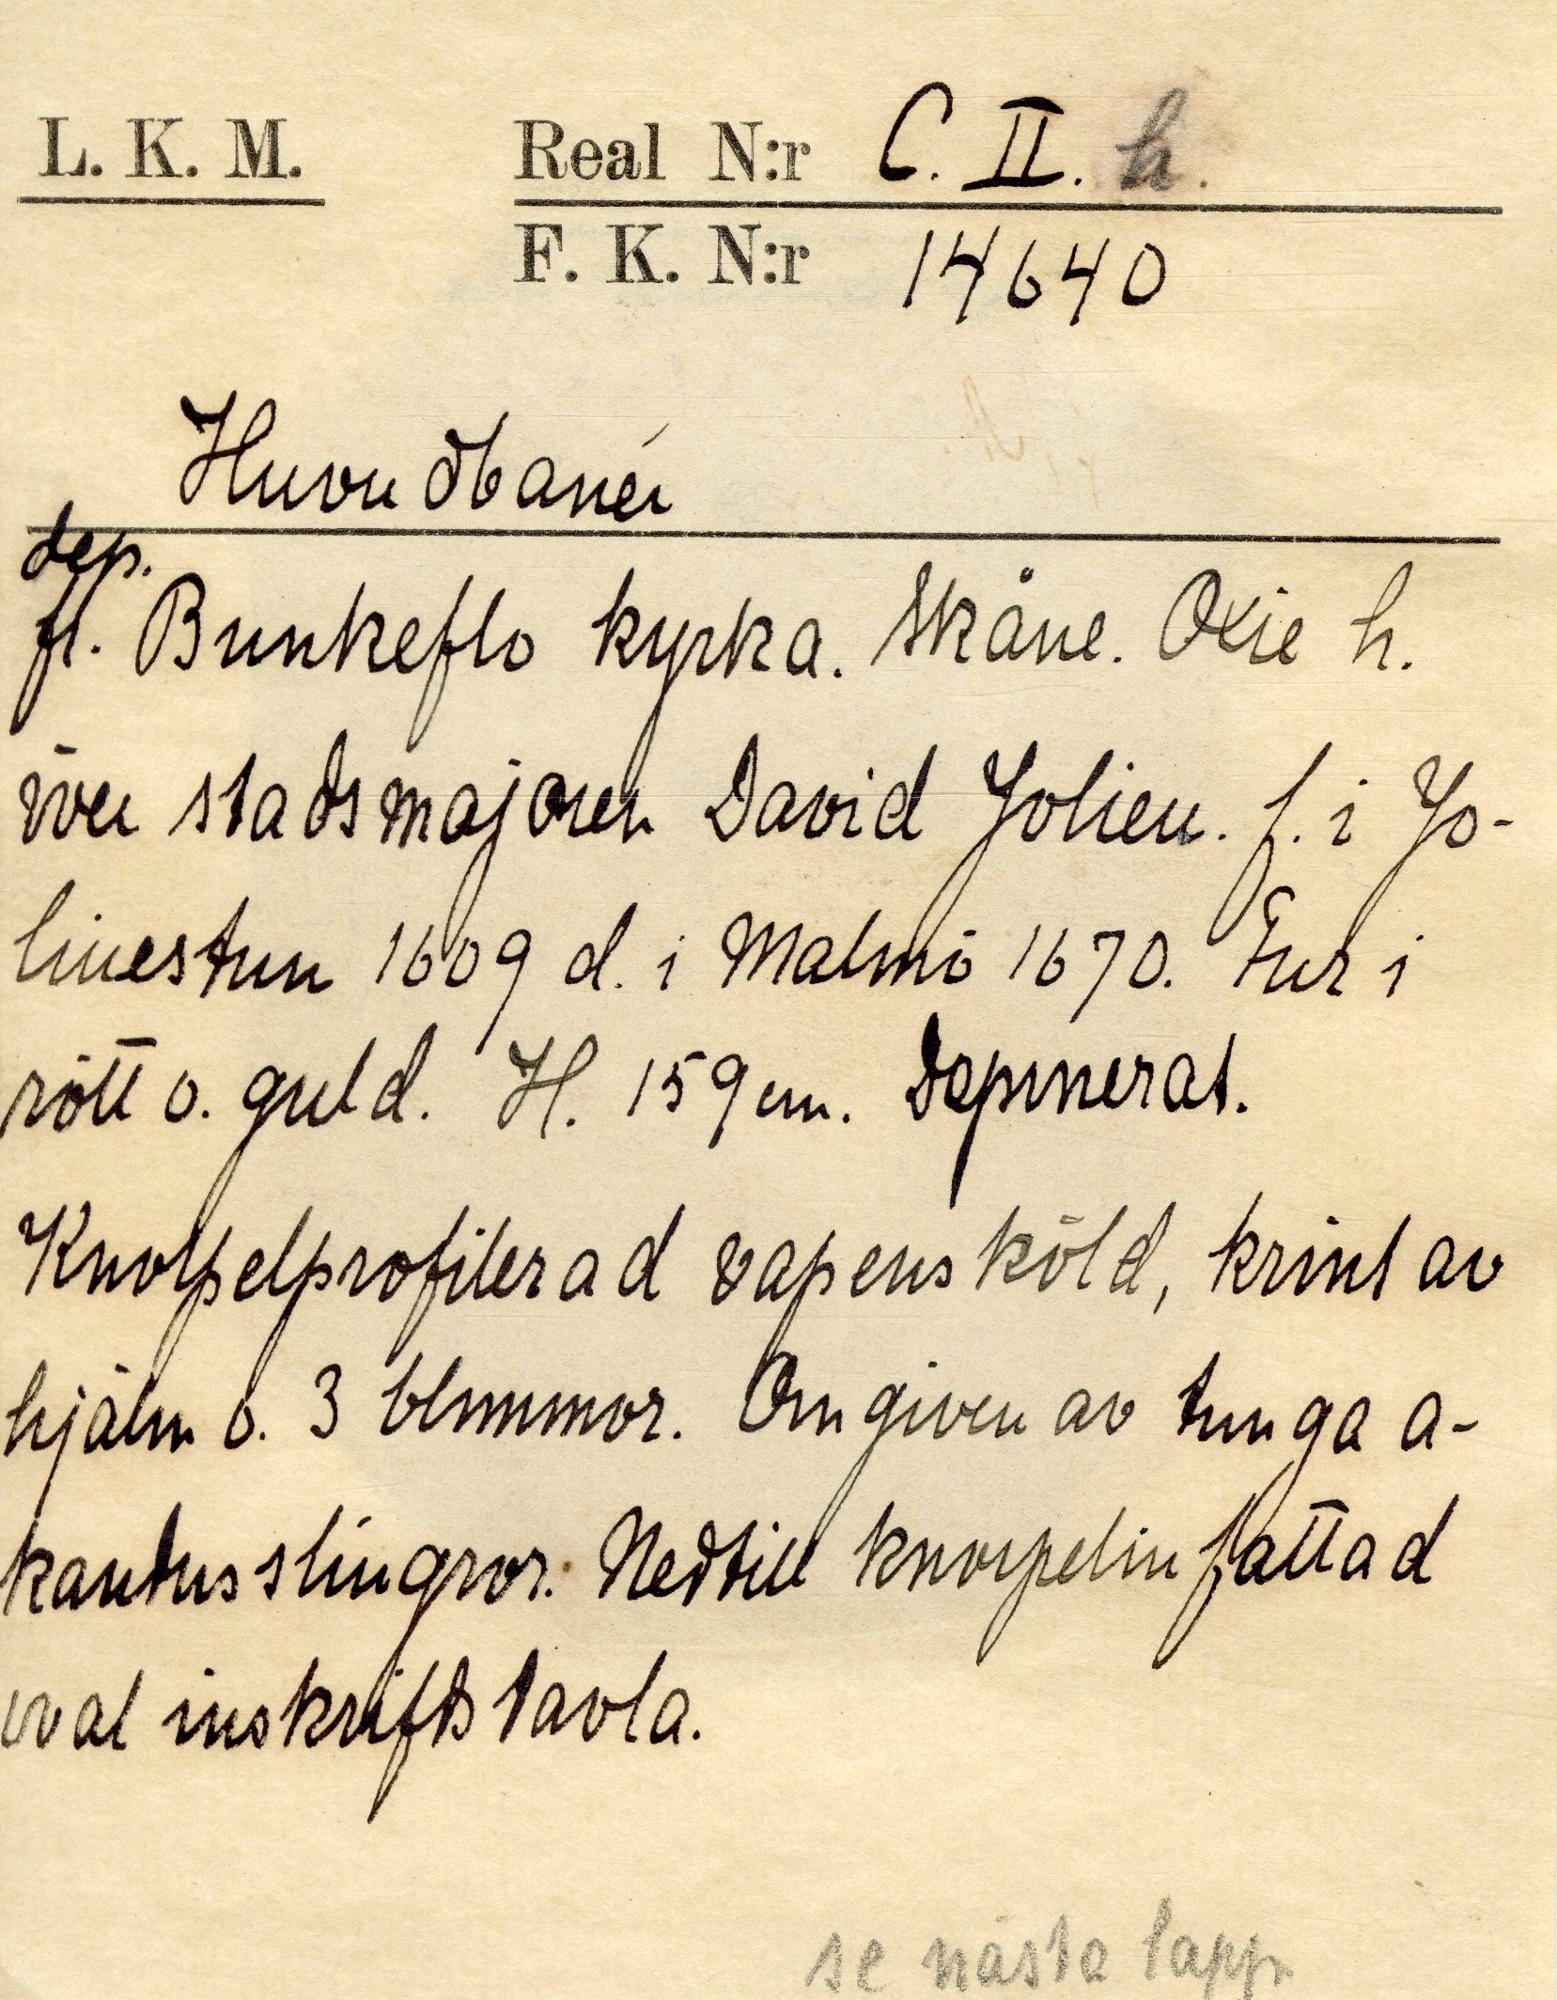 L. K. M. Real N:r C. II. h.
F. K. N:r 14640
Huvudbanér
dep.
fr. Bunkeflo kyrka. Skåne. Oxie h.
över stadsmajoren David Jolien. f. i Jo-
linestun 1609 d. i Malmö 1670. Fur i
rött o. guld. H. 159 cm. Deponerat.
Knorpelprofilerad vapensköld, krönt av
hjälm o. 3 blommor. Omgiven av tunga a-
kantusslingror. Nedtill knorpelinfattad
oval inskriftstavla.
se nästa lapp